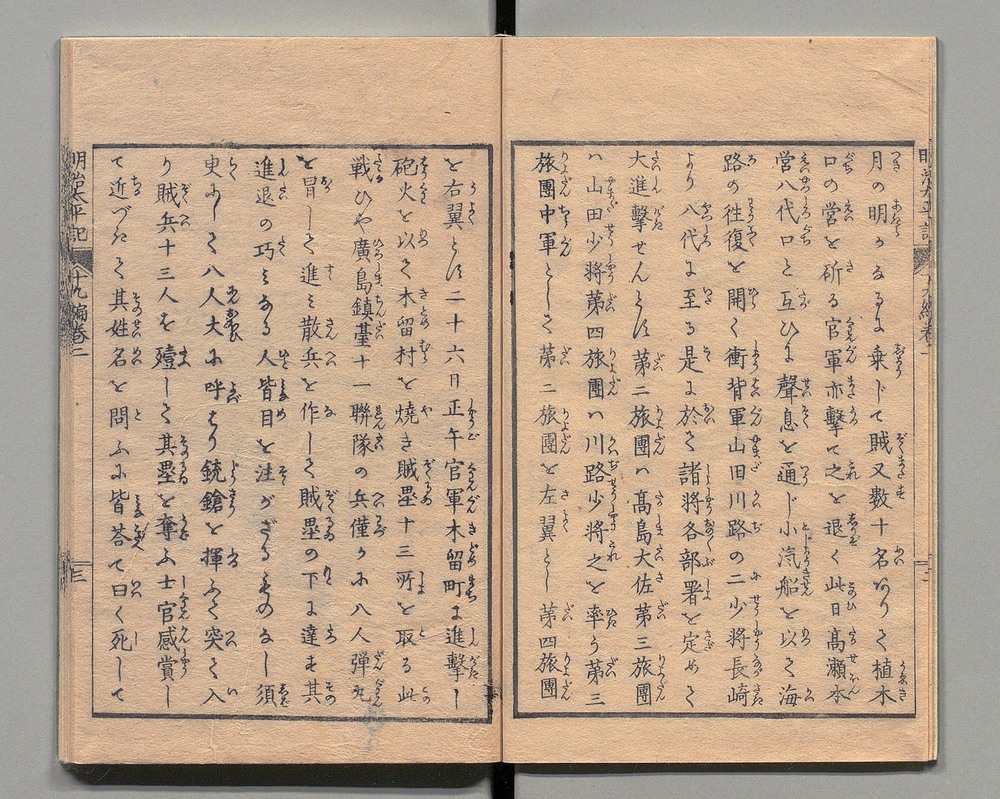 月の明かるに乗じて賊又数十名ありて植木
口の営を斫る官軍亦撃て之を退く此日髙瀬本
営八代口と互ひに聲息を通じ小汽船を以て海
路の徃復を開く衝背軍山田川路の二少将長崎
より八代に至る是に於て諸将各部署を定めて
大進撃せんとす第二旅團ハ髙島大佐第三旅團
ハ山田少将第四旅團ハ川路少将之を率う第三
旅團中軍として第二旅團を左翼とし第四旅團
を右翼とす二十六日正午官軍木留町に進撃し
砲火を以て木留村を焼き賊塁十三所を取る此
戦ひや廣島鎮臺十一聯隊の兵僅かに八人弾丸
を冒して進み散兵を作して賊塁の下に達す其
進退の巧みなる人皆目を注がざるものなし須
臾にして八人大に呼はり銃鎗を揮ふて突て入
り賊兵十三人を殪して其塁を奪ふ士官感賞し
て近づきて其姓名を問ふに皆荅て曰く死して
明治太平記
十九編巻二
三